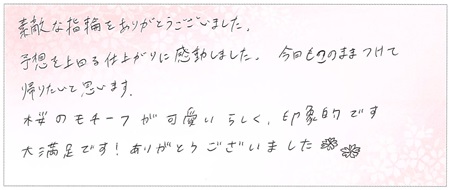 素敵な指輪をありがとうございました。
予想を上回る仕上がりに感動しました。 今日そのままつけて
帰りたいと思います。
桜のモチーフが可愛いらしく、印象的です
大満足です！ありがとうございました